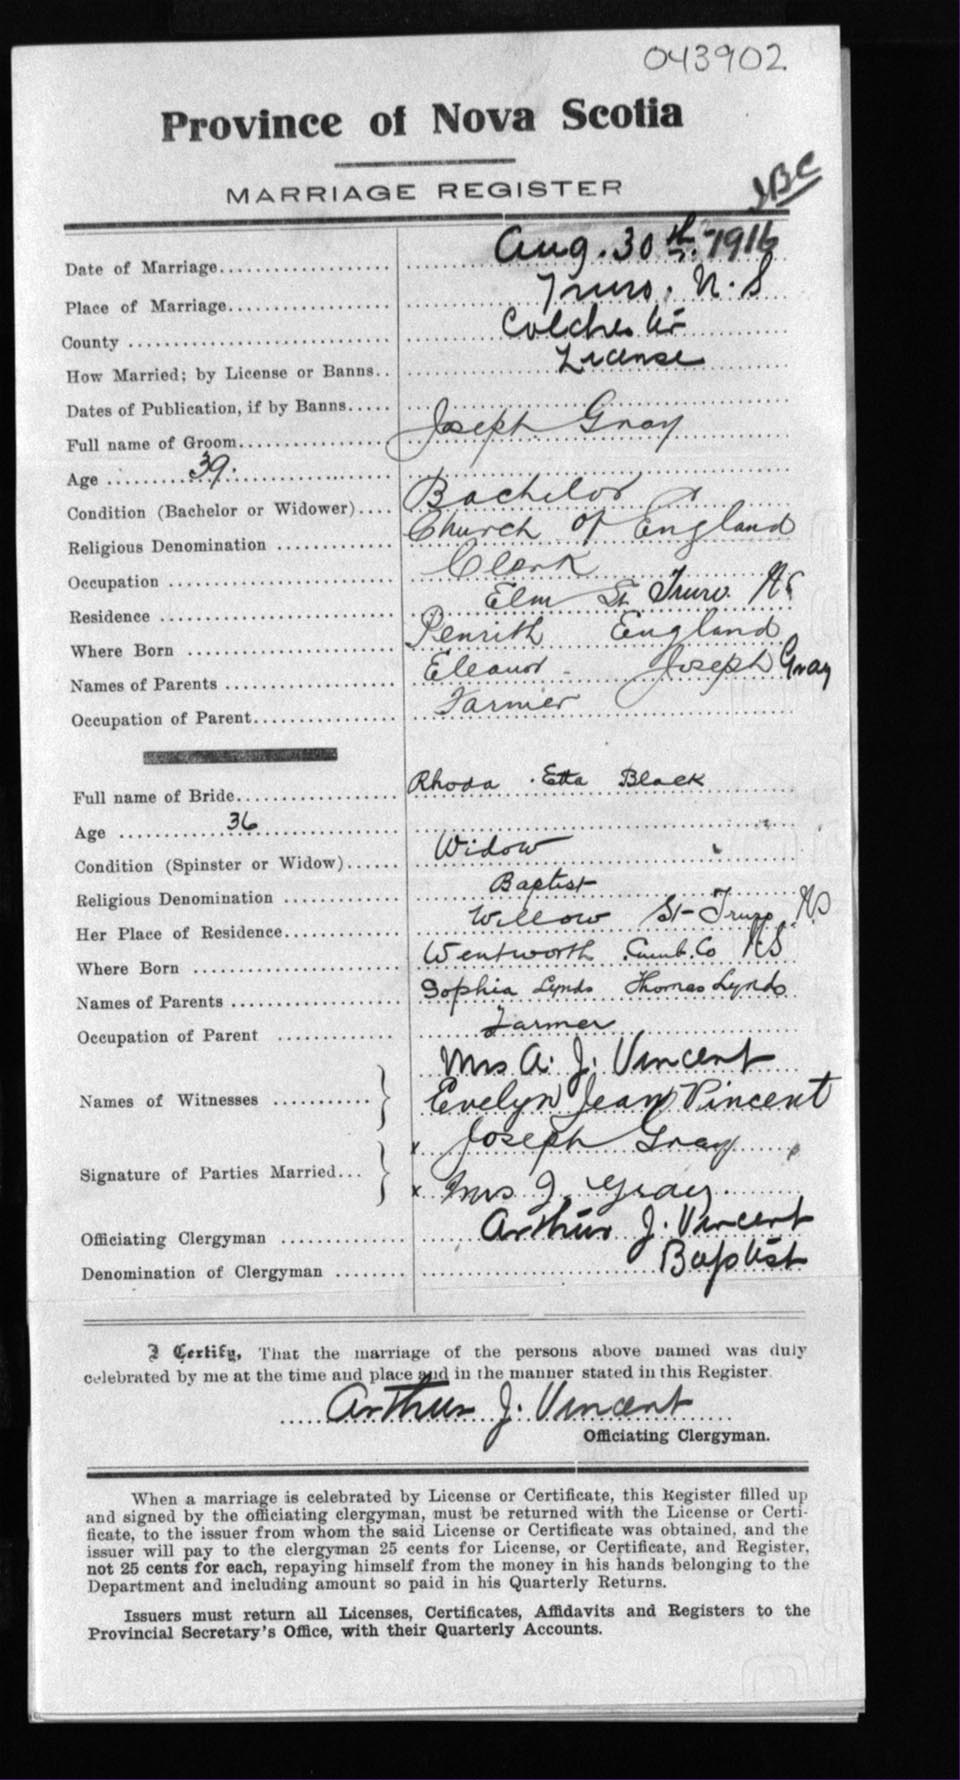 043902
Province of Nova Scotia
MARRIAGE REGISTER
Date of Marriage Aug. 30th. 1916
Place of Marriage Truro, N.S
County Colchester
How Married; by License or Banns License
Dates of Publication, if by Banns
Full name of Groom Joseph Gray
Age 39
Condition (Bachelor or Widower) Bachelor
Religious Denomination Church of England
Occupation Clerk
Residence Elm St Truro NS
Where Born Penrith England
Names of Parents Eleanor - Joseph Gray
Occupation of Parent Farmer
Full name of Bride Rhoda Etta Black
Age 36
Condition (Spinster or Widow) Widow
Religious Denomination Baptist
Her Place of Residence Willow St- Truro, NS
Where Born Wentworth Cumb. Co NS
Names of Parents Sophia Lynds Thomas Lynds
Occupation of Parent Farmer
Names of Witnesses Mrs A. J. Vincent
Evelyn Jean Vincent
Signature of Parties Married x Joseph Gray
x Mrs J. Gray
Officiating Clergyman Arthur J. Vincent
Denomination of Clergyman Baptist
I Certify, That the marriage of the persons above named was duly
celebrated by me at the time and place and in the manner stated in this Register.
Arthur J. Vincent
Officiating Clergyman.
When a marriage is celebrated by License or Certificate, this Register filled up
and signed by the officiating clergyman, must be returned with the License or Certi-
ficate, to the issuer from whom the said License or Certificate was obtained, and the
issuer will pay to the clergyman 25 cents for License, or Certificate, and Register,
not 25 cents for each, repaying himself from the money in his hands belonging to the
Department and including amount so paid in his Quarterly Returns.
Issuers must return all Licenses, Certificates, Affidavits and Registers to the
Provincial Secretary's Office, with their Quarterly Accounts.